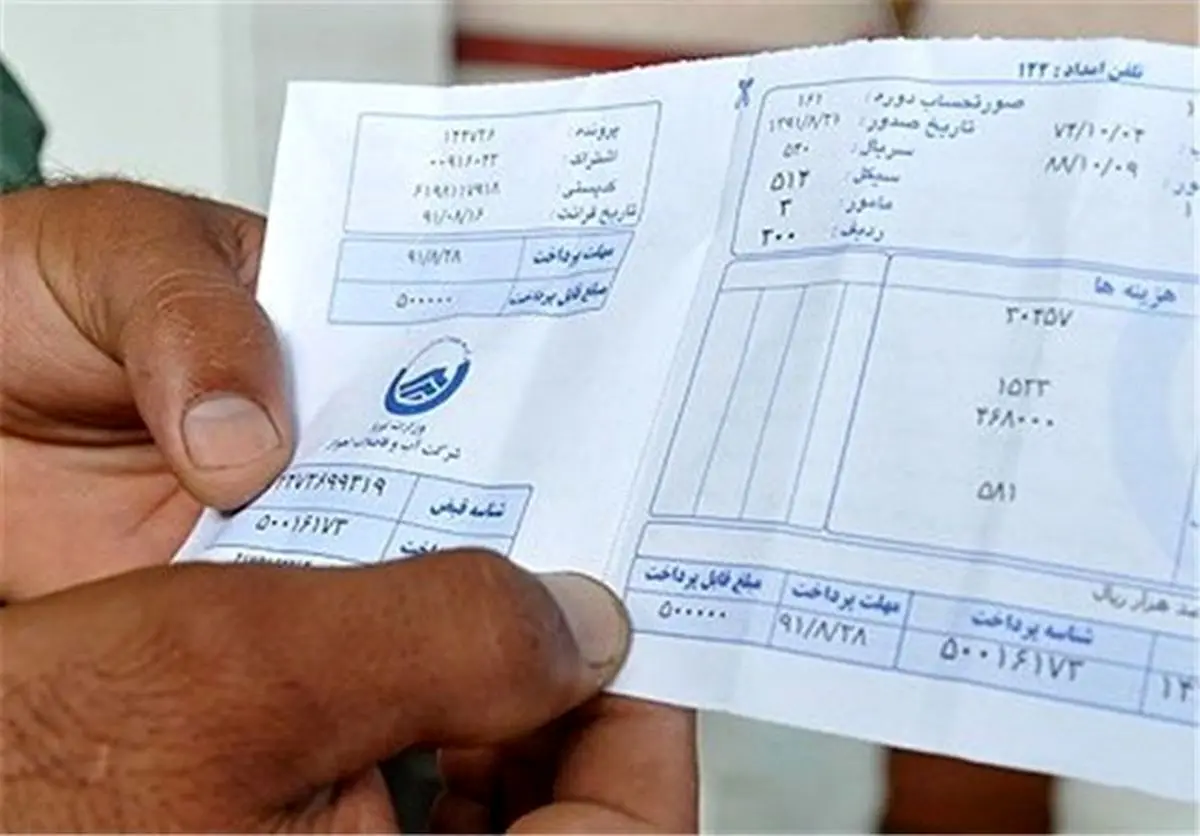 تلفن امداد : ۱۲۲
صورتحساب دوره : ۱۶۱
تاریخ صدور : ۱۳۹۱/۸/۲۱
سریال : ۵۲۰
سیکل : ۵۱۲
مامور : ۳
ردیف : ۲۰۰
۷۴/۱۰/۰۴
۸۸/۱۰/۰۹
هزینه ها
۳۰۴۵۷
۱۵۲۳
۴۶۸۰۰۰
۵۸۱
هزار ریال
مبلغ قابل پرداخت مهلت پرداخت شناسه پرداخت
۵۰۰۰۰۰ ۹۱/۸/۲۸ ۵۰۰۱۶۱۷۳
پرونده : ۱۴۴۷۲۶
اشتراک : ۰۰۹۱۶۰۲۳
کدپستی : ۶۱۹۸۱۱۷۹۱۸
تاریخ قرائت : ۹۱/۰۸/۱۶
مهلت پرداخت ۹۱/۸/۲۸
مبلغ قابل پرداخت ۵۰۰۰۰۰
وزارت نیرو
شرکت آب و فاضلاب اهواز
شناسه قبض
۵۰۰۱۶۱۷۳